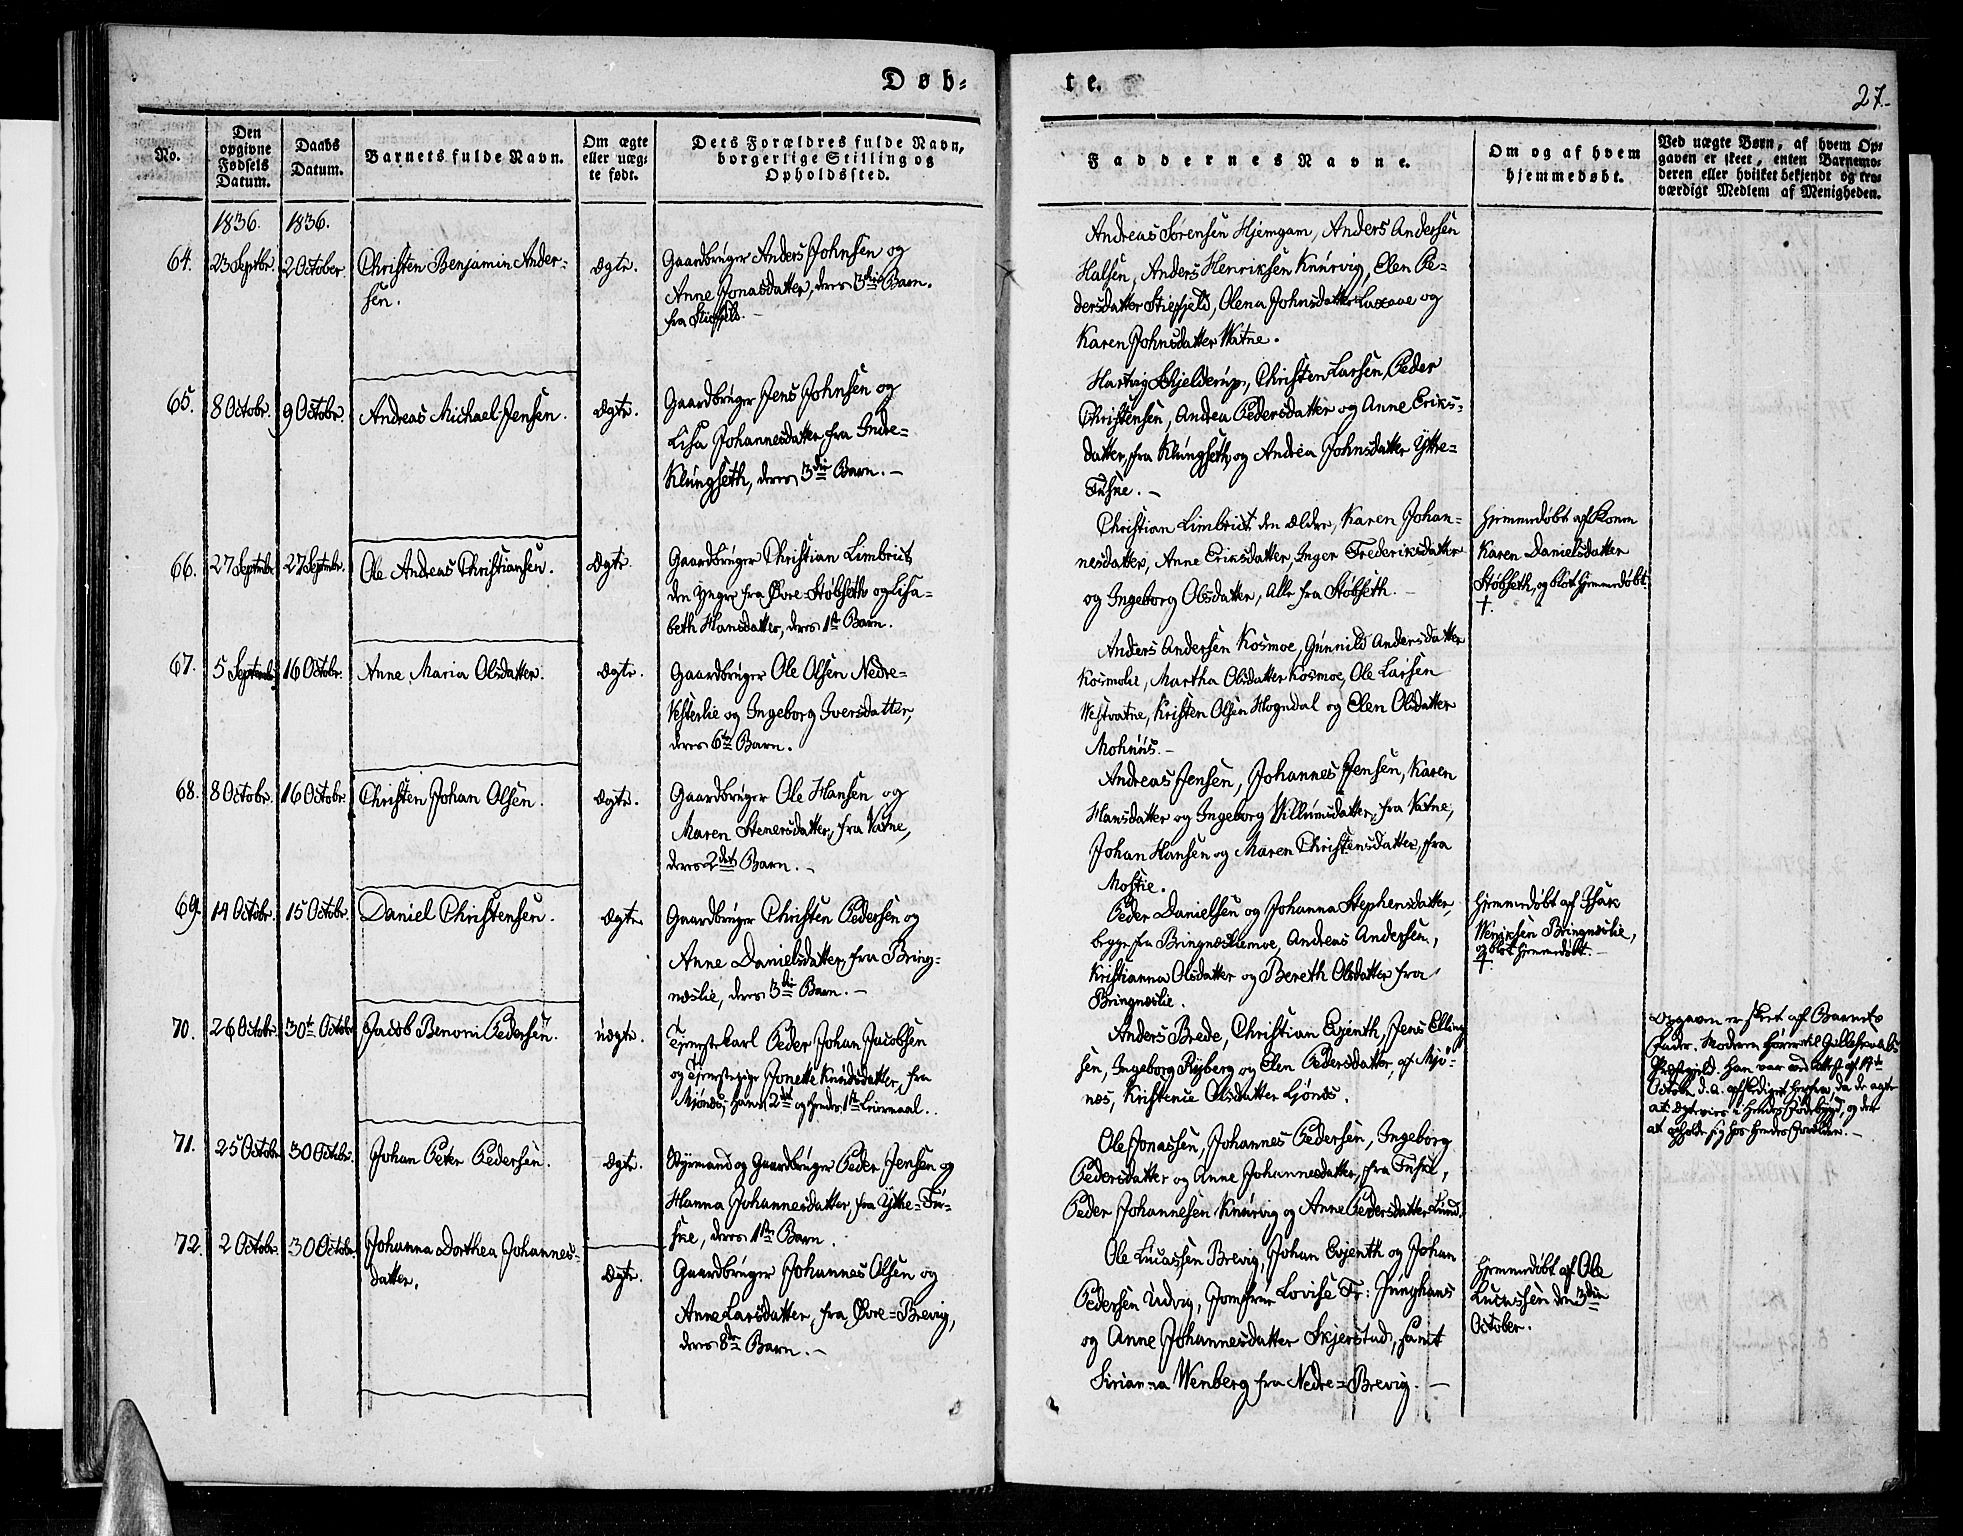 Døb=
te.
27.
No.
Den
opgivne
Fødsels
Datum.
Daabs
Datum.
Barnets fulde Navn.
Om ægte
eller uæg=
te født.
Dets Forældres fulde Navn,
borgerlige Stilling og
Opholdssted.
Faddernes Navne.
Om og af hvem
hjemmedøbt.
Ved uægte Børn, af hvem Op=
gaven er skeet, enten Barnemo=
deren eller hvilket bekjendt og tro=
værdigt Medlem af Menigheden.
1836. 1836.
64. 23 Septbr. 2 October.
Christen Benjamin Ander=
sen.
Ægte.
Gaardbruger Anders Johnsen og
Anne Jonasdatter, deres 3die Barn.
fra Stiefjeld. —
Andreas Sørensen Hjemgam, Anders Andersen
Halsen, Anders Henriksen Knurvig, Elen Pe=
dersdatter Stiefjeld, Olena Johnsdatter Laxaae og
Karen Johnsdatter Watne.
65. 8 Octobr. 9 Octobr.
Andreas Michael Jensen.
Ægte.
Gaardbruger Jens Johnsen og
Lisa Johannesdatter fra Indre=
Klungseth, deres 3die Barn. —
Hartvig Schjelderup, Christen Larsen, Peder
Christensen, Andrea Pedersdatter og Anne Eriks=
datter, fra Klungseth og Andrea Johnsdatter Yttre=
Fusne. —
66. 27 Septmbr. 27 Septmbr.
Ole Andreas Christiansen.
Ægte.
Gaardbruger Christian Limbrict
den Yngre fra Øvre=Støbseth og Lisa=
beth Hansdatter, deres 1ste Barn.
Christian Limbrict den ældre, Karen Johan=
nesdatter, Anne Eriksdatter, Inger Frederiksdatter
og Ingeborg Olsdatter, alle fra Støbseth. —
Hjemmedøbt af Konen
Karen Danielsdatter
Støbseth, og blot hjemmedøbt.
†.
67. 5 Septembr. 16 Octobr.
Anne Maria Olsdatter.
Ægte.
Gaardbruger Ole Olsen Nedre=
Vesterlie og Ingeborg Iversdatter,
deres 6te Barn.
Anders Andersen Kosmoe, Gunnild Andersdatter
Kosmolie, Martha Olsdatter Kosmoe, Ole Larsen
Westvatne, Kristen Olsen Hogndal og Elen Olsdatter
Mohuus. —
68. 8 Octobr. 16 Octobr.
Christen Johan Olsen.
Ægte.
Gaardbruger Ole Hansen og
Maren Stenersdatter, fra Vatne,
deres 2det Barn. —
Andreas Jensen, Johannes Jensen, Karen
Hansdatter og Ingeborg Willumsdatter, fra Vatne,
Johan Hansen og Maren Christensdatter, fra
Mostie.
69. 14 Octobr. 15 Octobr.
Daniel Christensen.
Ægte.
Gaardbruger Christen Pedersen og
Anne Danielsdatter, fra Bring=
næslie, deres 3die Barn. —
Peder Danielsen og Johanna Stephensdatter,
begge fra Bringnæsliemoe, Andreas Andersen,
Kristianna Olsdatter og Bereth Olsdatter fra
Bringnæslie.
Hjemmedøbt af Isak
Henriksen Bringnæslie,
og blot hjemmedøbt. —
†.
70. 26 Octobr. 30te Octobr.
Jacob Benoni Pedersen.
Uægte.
Tjenestekarl Peder Johan Jacobsen
og Tjenestepige Jonette Knudsdatter, fra
Mjønes, hans 2det og hendes 1ste Leiermaal.
Anders Brede, Christian Evjenth, Jens Elling=
sen, Ingeborg Ryberg og Elen Pedersdatter, af Mjø=
næs, Kristence Olsdatter Ljønæs.
Opgaven er skeet af Barnets
Fader. Moderen hører til Gilleskaals
Præstegjeld. Han var ved Attest af 17de
Octobr. d. A. afskediget herfra, da de agte
at ægtevies i hendes Fødebygd, og der
at opholde sig hos hendes Forældre. —
71. 25 Octobr. 30 Octobr.
Johan Peter Pedersen.
Ægte.
Nymand og Gaardbruger Peder Jensen og
Hanna Johannesdatter, fra Yttre=Fu=
sne, deres 1ste Barn.
Ole Jonassen, Johannes Pedersen, Ingeborg
Pedersdatter og Anne Johannesdatter, fra Fusne,
Peder Johannesen Knurvig og Anne Pedersdatter Lund.
72. 2 Octobr. 30 Octobr.
Johanna Dorthea Johannes=
datter.
Ægte.
Gaardbruger Johannes Olsen og
Anne Larsdatter, fra Øvre=Brevig,
deres 8de Barn. —
Ole Lucassen Brevig, Johan Evjenth og Johan
Pedersen Udvig, Jomfrue Lovise Fr: Junghans
og Anne Johannesdatter Skjerstad, samt
Sirianna Wenberg fra Nedre=Brevig. —
Hjemmedøbt af Ole
Lucassen den 3die
October.